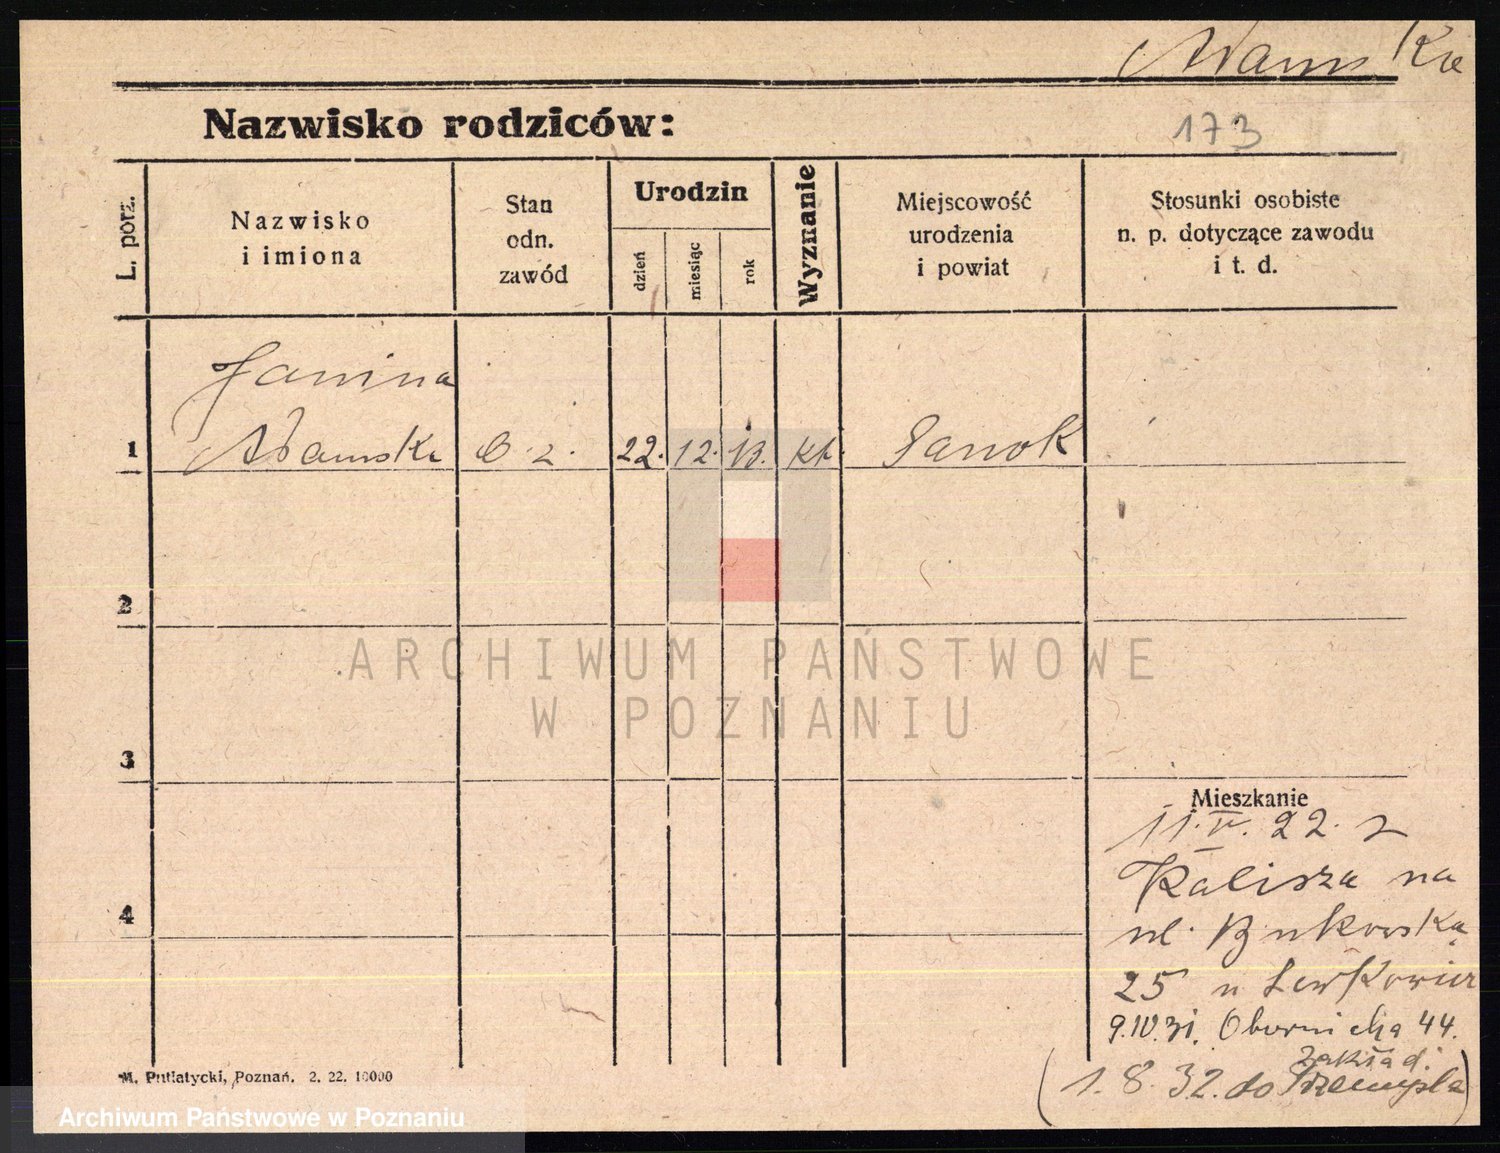 Adamska
Nazwisko rodziców:
173
L. porz.
Nazwisko
i imiona
Stan
odn.
zawód
Urodzin
dzień
miesiąc
rok
Wyznanie
Miejscowość
urodzenia
i powiat
Stosunki osobiste
n. p. dotyczące zawodu
i t. d.
Janina
1 Adamska 22. 12. 13. kt. Sanok
2
3
4
Mieszkanie
11. V. 22. z
Kalisza na
ul. Bukowską
25 u Lewkowicz
9.IV 31. Obornicka 44.
zakład.
(1. 8. 32. do Przemyśla)
M. Putiatycki, Poznań. 2. 22. 10000
ARCHIWUM PAŃSTWOWE
W POZNANIU
Archiwum Państwowe w Poznaniu